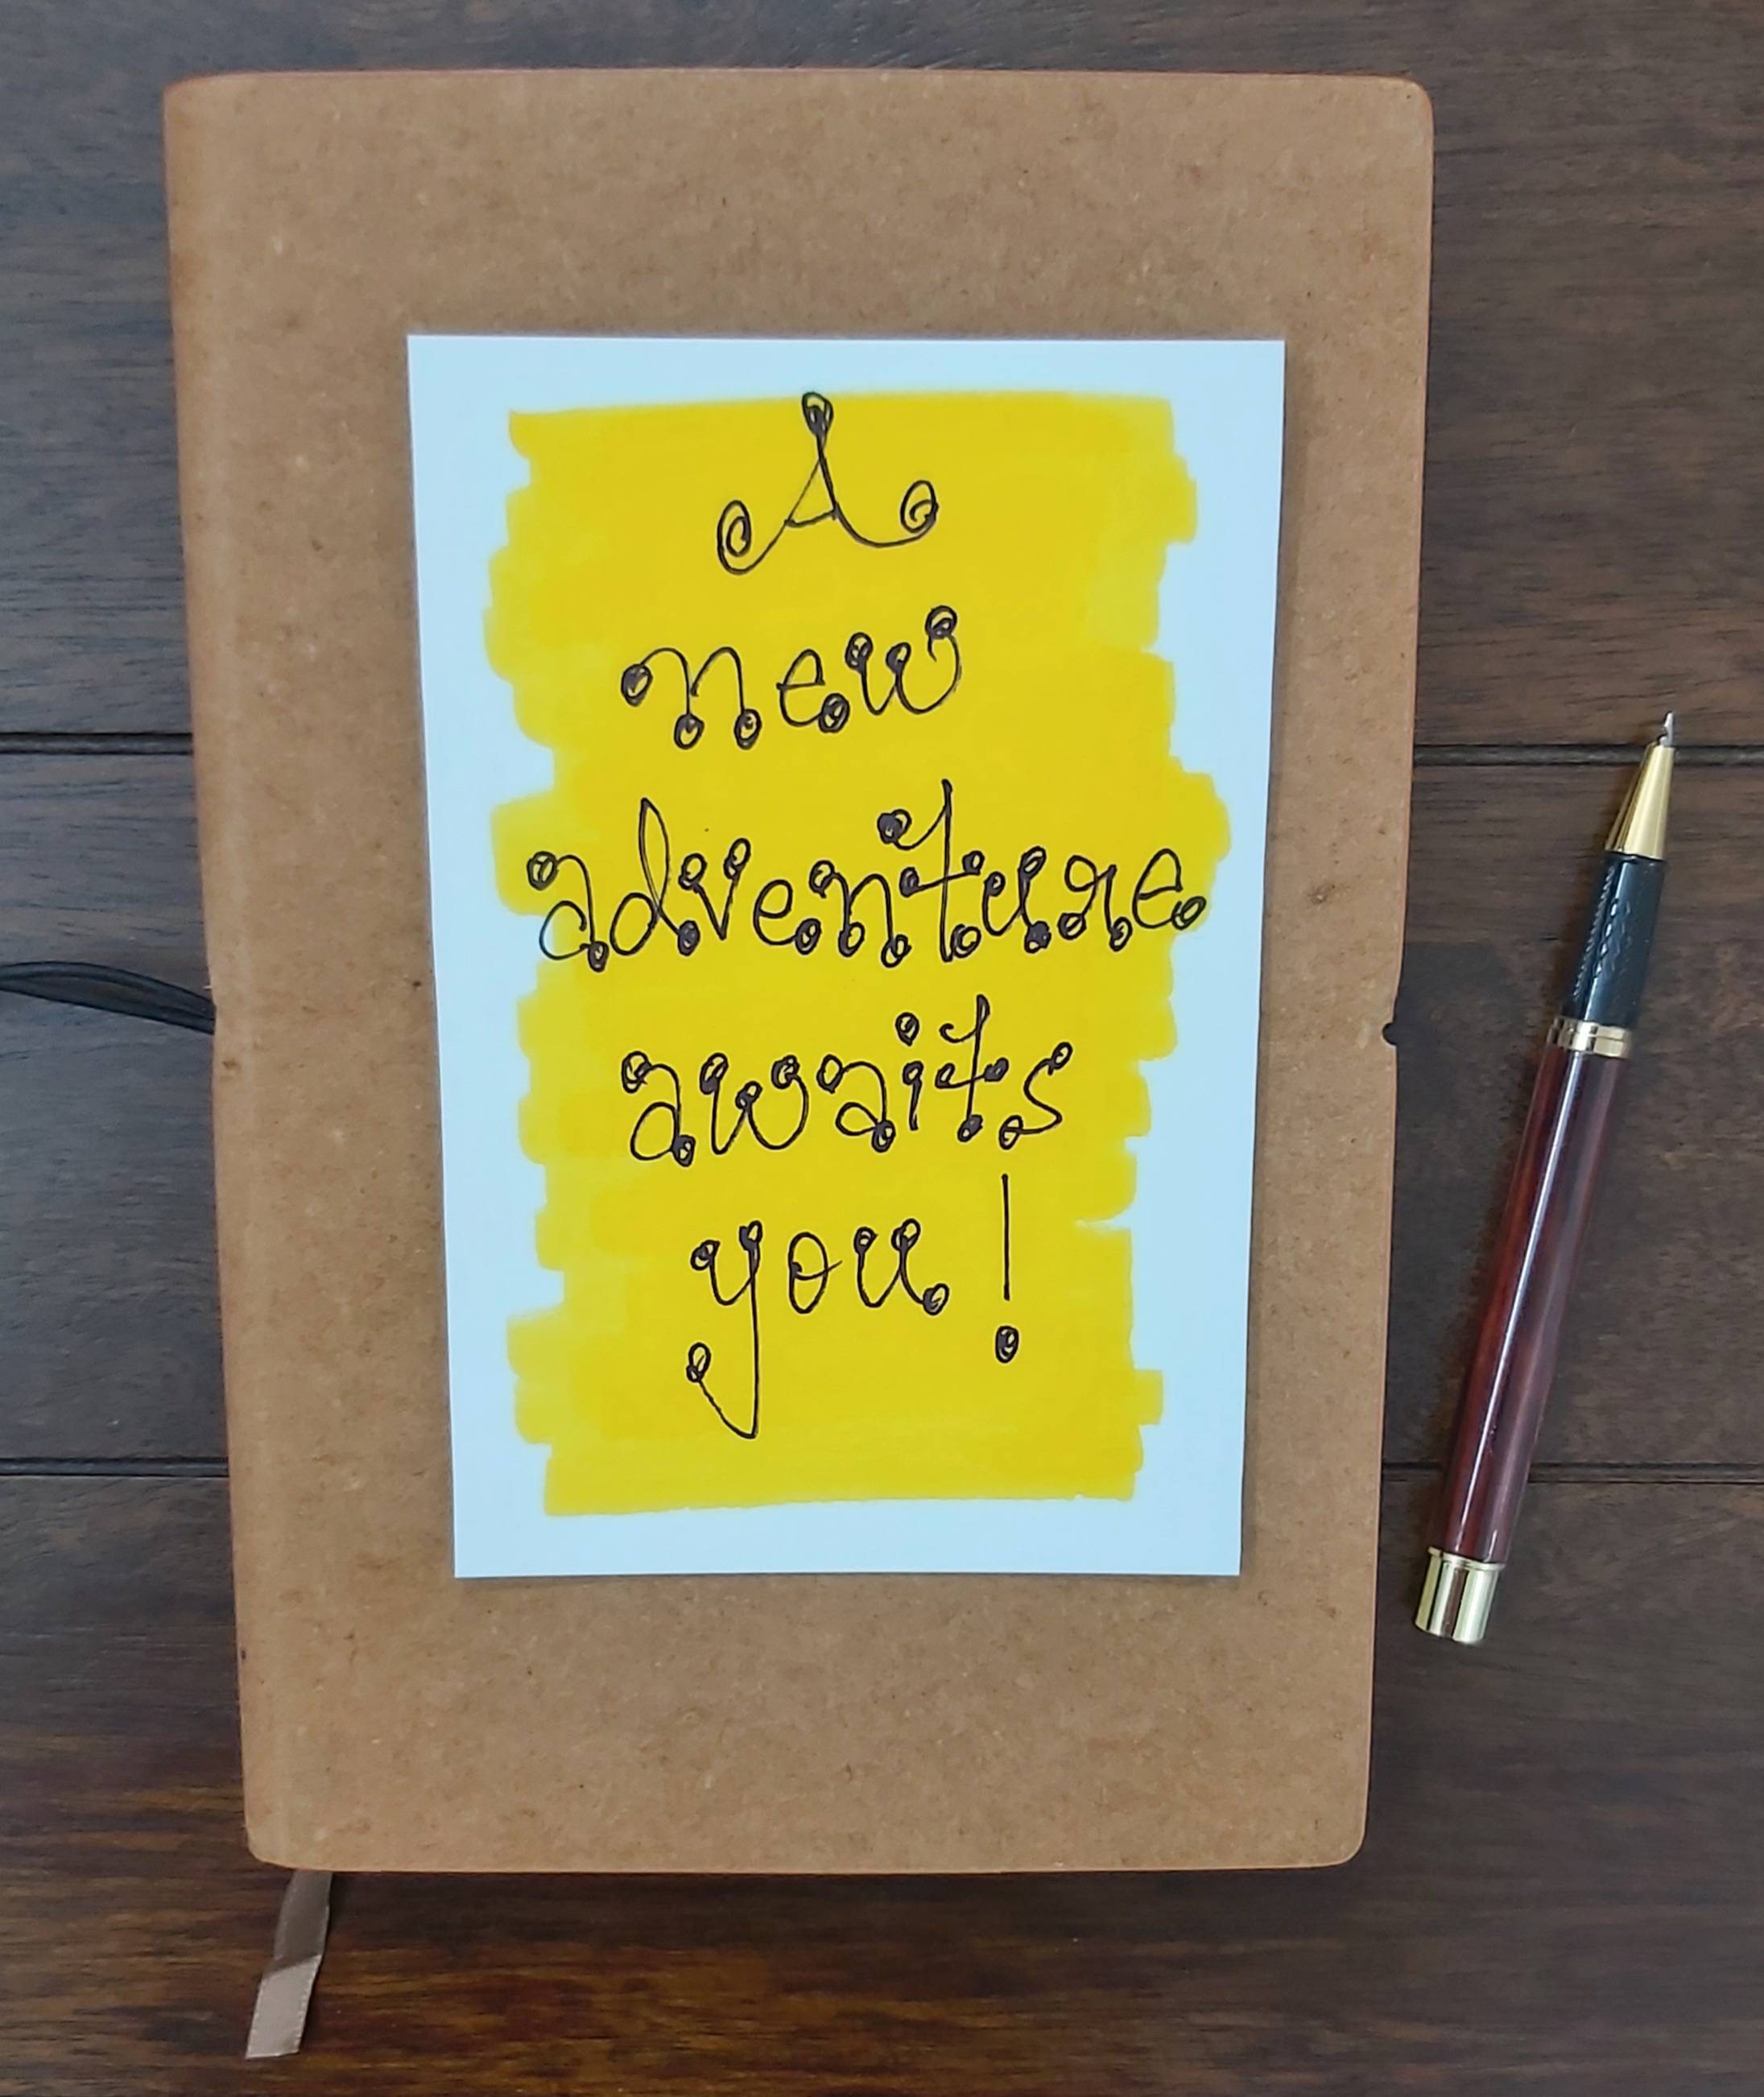 A
new
adventure
awaits
you!